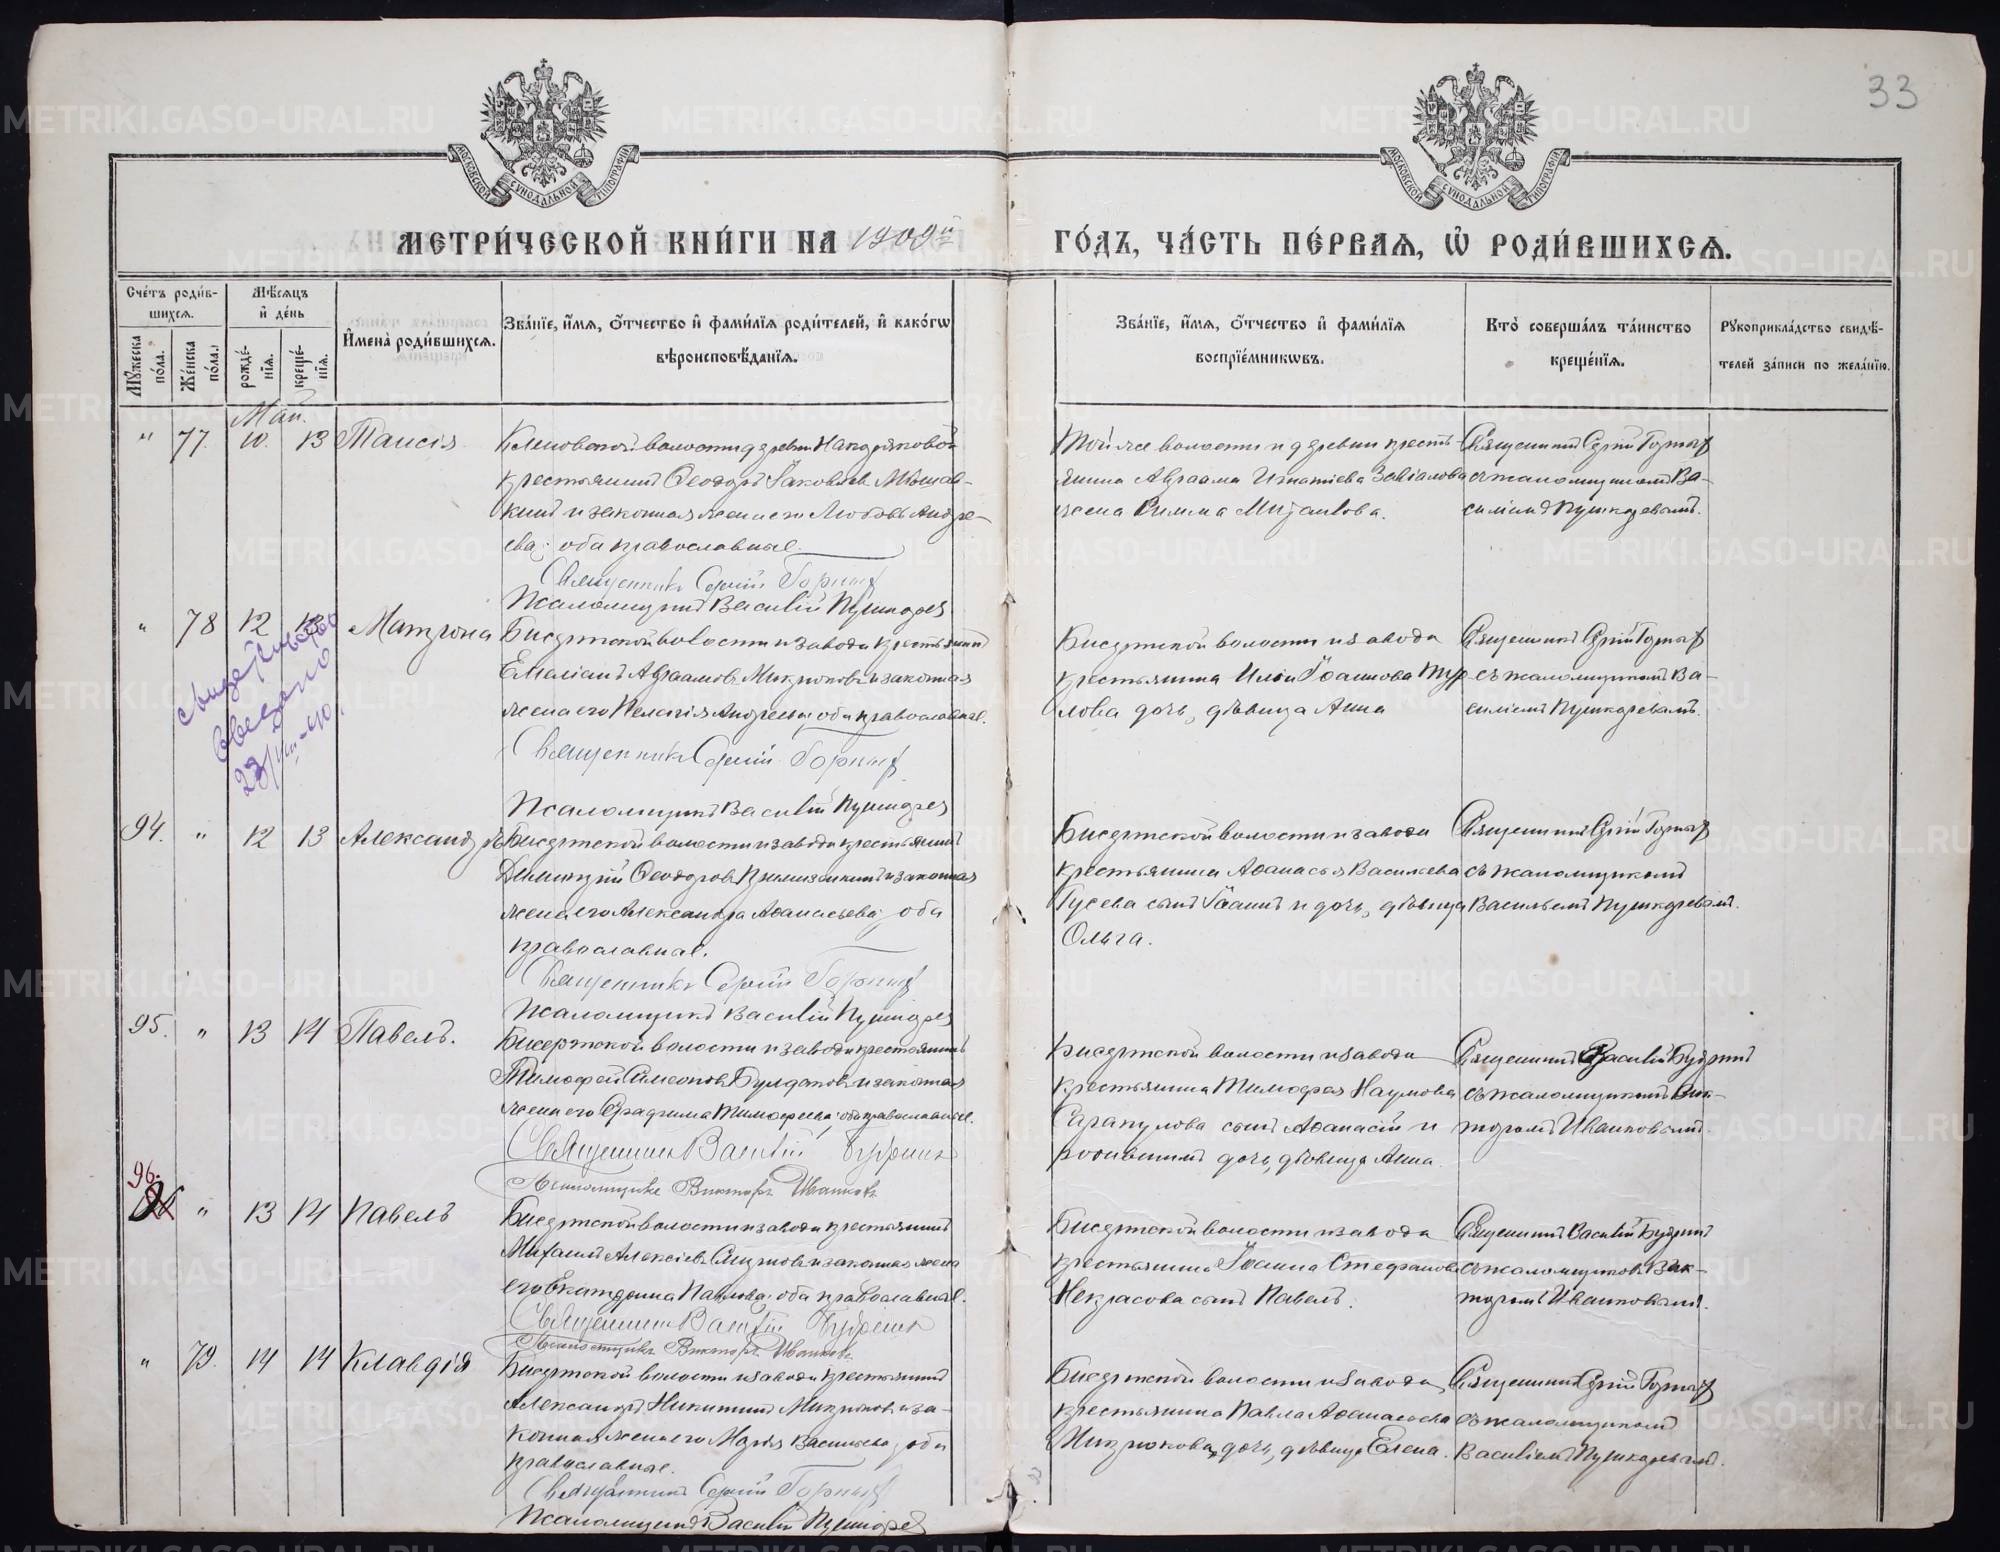 33
МОСКОВСКОЙ СѴНОДАЛЬНОЙ ТИПОГРАФІИ
МОСКОВСКОЙ СѴНОДАЛЬНОЙ ТИПОГРАФІИ
МЕТРИ́ЧЕСКОЙ КНИ́ГИ НА 1909й
ГО́ДЪ, ЧА́СТЬ ПЕ́РВАѦ, Ѡ҆ РОДИ́ВШИХСѦ.
Сче́тъ роди́в-
шихсѧ.
Мꙋ́жеска по́ла.
Же́нска по́ла.
Мѣ́сѧцъ
и҆ де́нь
рожде́-
нїѧ.
креще́-
нїѧ.
И҆мена̀ роди́вшихсѧ.
Зва́нїе, и҆́мѧ, ѻ҆́тчество и҆ фами́лїѧ роди́телей, и҆ како́гѡ
вѣроисповѣ́данїѧ.
Зва́нїе, и҆́мѧ, ѻ҆́тчество и҆ фами́лїѧ
воспрїе́мникѡвъ.
Кто̀ соверша́лъ та́инство
креще́нїѧ.
Рꙋкоприкла́дство свидѣ́-
телей за́писи по жела́нїю.
Май.
" 77. 10. 13 Таисія
Кленовской волости деревни Накоряковой
крестьянинъ Ѳеодоръ Іаковлевъ Мѣшав-
кинъ и законная жена его Любовь Андре-
ева; оба православные.
Священникъ Сергій Горныхъ
Псаломщикъ Василій Пушкарев
Той же волости и деревни кресть-
янина Авраама Игнатіева Завіалова
жена Римма Михаилова.
Священникъ Сергій Горныхъ
съ псаломщикомъ Ва-
силіемъ Пушкаревымъ.
" 78 12 13 Матрона
свидетельство
сведено
23/VIII-40.
Бисертской волости и завода крестьянинъ
Емеліанъ Авраамовъ Мизюковъ и законная
жена его Пелагія Андреева; оба православные.
Священникъ Сергій Горныхъ
Псаломщикъ Василій Пушкарев
Бисертской волости и завода
крестьянина Иліи Іоаннова Тур-
лова дочь, дѣвица Анна
Священникъ Сергій Горныхъ
съ псаломщикомъ Ва-
силіемъ Пушкаревымъ.
94. " 12 13 Александръ
Бисертской волости и завода крестьянинъ
Димитрій Ѳеодоровъ и законная
жена его Александра Аѳанасьева; оба
православные.
Священникъ Сергій Горныхъ
Псаломщикъ Василій Пушкарев
Бисертской волости и завода
крестьянина Аѳанасья Васильева
Гусева сынъ Іоаннъ и дочь, дѣвица
Ольга.
Священникъ Сергій Горныхъ
съ псаломщикомъ
Васильемъ Пушкаревымъ.
95. " 13 14 Павелъ.
Бисертской волости и завода крестьянинъ
Тимоѳей Симеоновъ Булдаковъ и законная
жена его Серафима Тимоѳеева; оба православные.
Священникъ Василій Будринъ
Псаломщикъ Викторъ Иванковъ
Бисертской волости и завода
крестьянина Тимоѳея Наумова
Сарапулова сынъ Аѳанасій и
дочь, дѣвица Анна.
Священникъ Василій Будринъ
съ псаломщикомъ Вик-
торомъ Иванковымъ.
96. " 13 14 Павелъ
Бисертской волости и завода крестьянинъ
Михаилъ Алексіевъ Смирновъ и законная жена
его Екатерина Павлова; оба православные.
Священникъ Василій Будринъ
Псаломщикъ Викторъ Иванковъ
Бисертской волости и завода
крестьянина Іоанна Стефанова
Некрасова сынъ Павелъ.
Священникъ Василій Будринъ
съ псаломщикомъ Вик-
торомъ Иванковымъ.
" 79. 14 14 Клавдія
Бисертской волости и завода крестьянинъ
Александръ Никитинъ Мизюковъ и за-
конная жена его Марія Васильева; оба
православные.
Священникъ Сергій Горныхъ
Псаломщикъ Василій Пушкарев
Бисертской волости и завода
крестьянина Павла Аѳанасьева
Мизюкова, дочь, дѣвица Елена.
Священникъ Сергій Горныхъ
съ псаломщикомъ
Василіемъ Пушкаревымъ.
METRIKI.GASO-URAL.RU